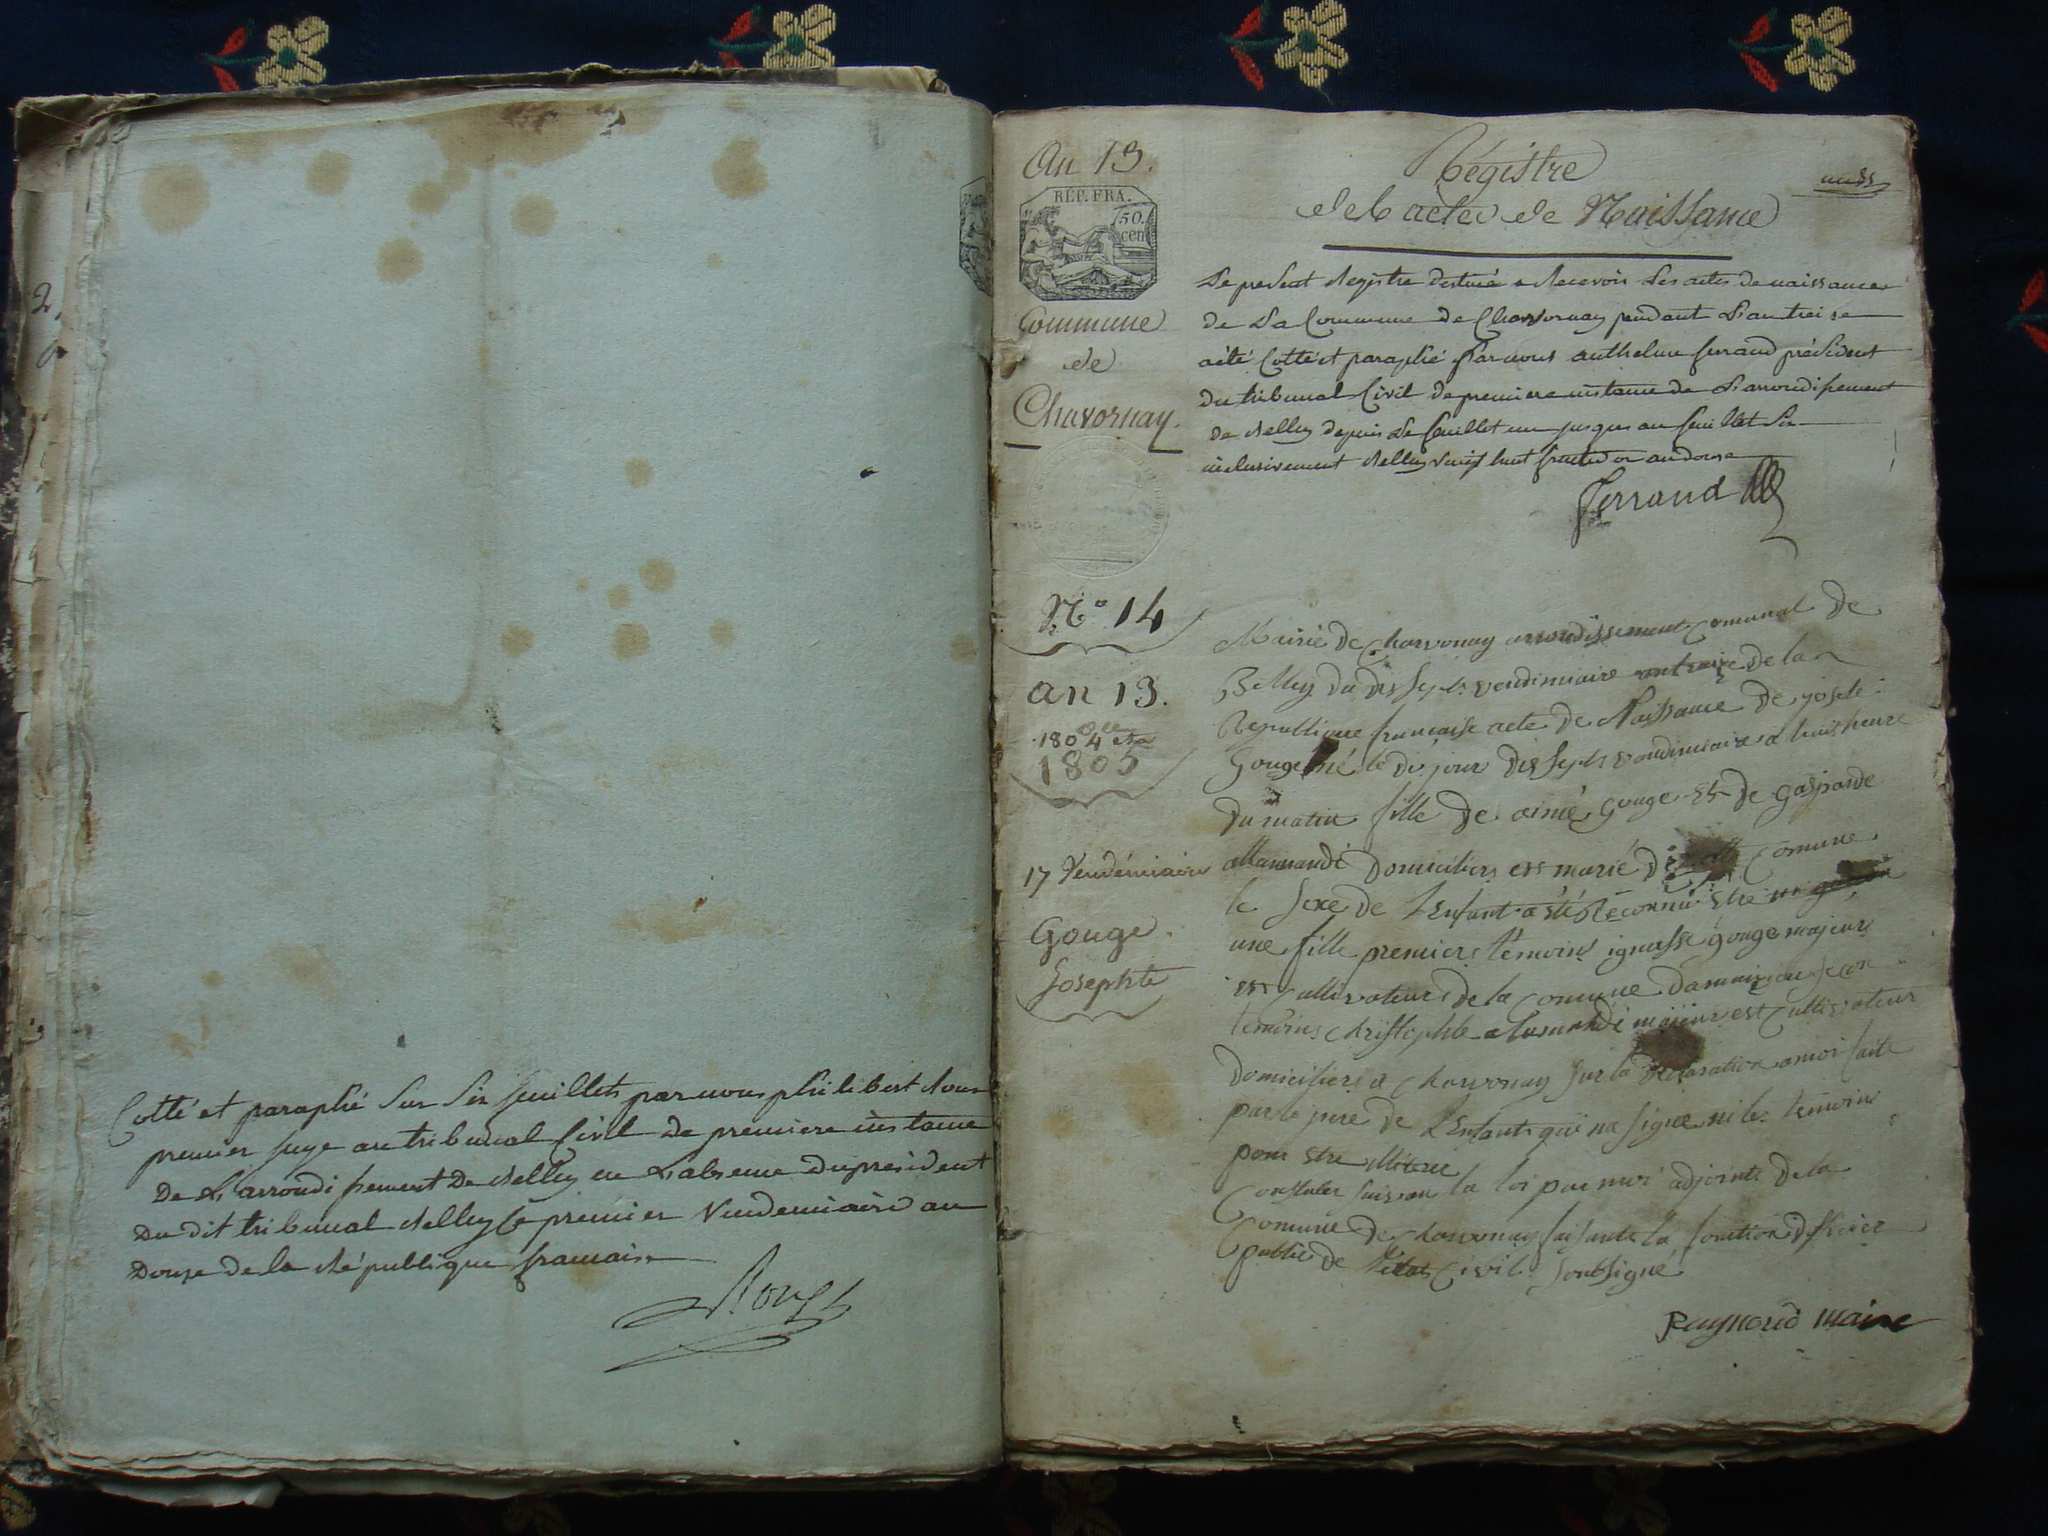 Cotté et paraphé Sur Six feuillets par nous philibert Roux
premier juge au tribunal Civil de premiere instance
De L'arrondissement De Belley en L'absence du président
Du dit tribunal Belley le premier Vendemiaire an
Douze de la République francaise
An 13.
REP. FRA.
50.
cen
Commune
de
Chavornay.
Régistre
des actes de Naissance
Le present Registre destiné a Recevoir Les actes de naissances
de La Commune de Chavornay pendant L'an treize
a été Cotté et paraphé Par nous anthelme ferrand président
du tribunal Civil de premiere instance de L'arrondissement
de Belley depuis Le feuillet un jusques au feuillet Six
inclusivement Belley vingt huit fructidor an douze
Ferrand
N.° 14
an 13.
1804 et
1805
17 Vendémiaire
Gouge
Josephte
Mairie de Charvonay arrondissement Comunal de
Belley du dix sept vendimiaire an treize de la
Republique francaise acte de Naissance de josete
Gouge né le di jour dix sept vandimiaire a huit heure
du matin fille de aimé gouge et de gasparde
allamandi domiciliers et marié de Comune
le sexe de L'Enfant a été Reconnu Etre
une fille premiers témoins ignasse gouge majeur
et Cultivateur de la Comune second
temoins christophle alamandi majeur et Cultivateur
domicilier a Charvonay sur la declaration a moi faite
par le pere de L'Enfant qui na signé ni les temoins
pour Etre
Constater suivan la loi par moi adjoint de la
Comune de Charvonay faisant la fonction dofficier
public de l'état Civil soubsigné
Raymond maire